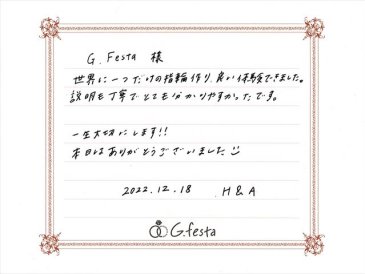 G.Festa 様
世界に一つだけの指輪作り、良い体験できました。
説明も丁寧でとても分かりやすかったです。
一生大切にします!!
本日はありがとうございました
2022.12.18 H&A
G.festa